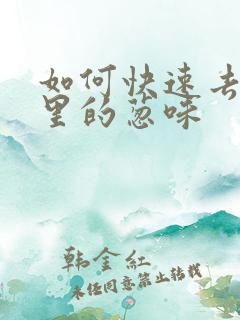 如何快速去
里的葱味
韩金红
未经同意禁止转载